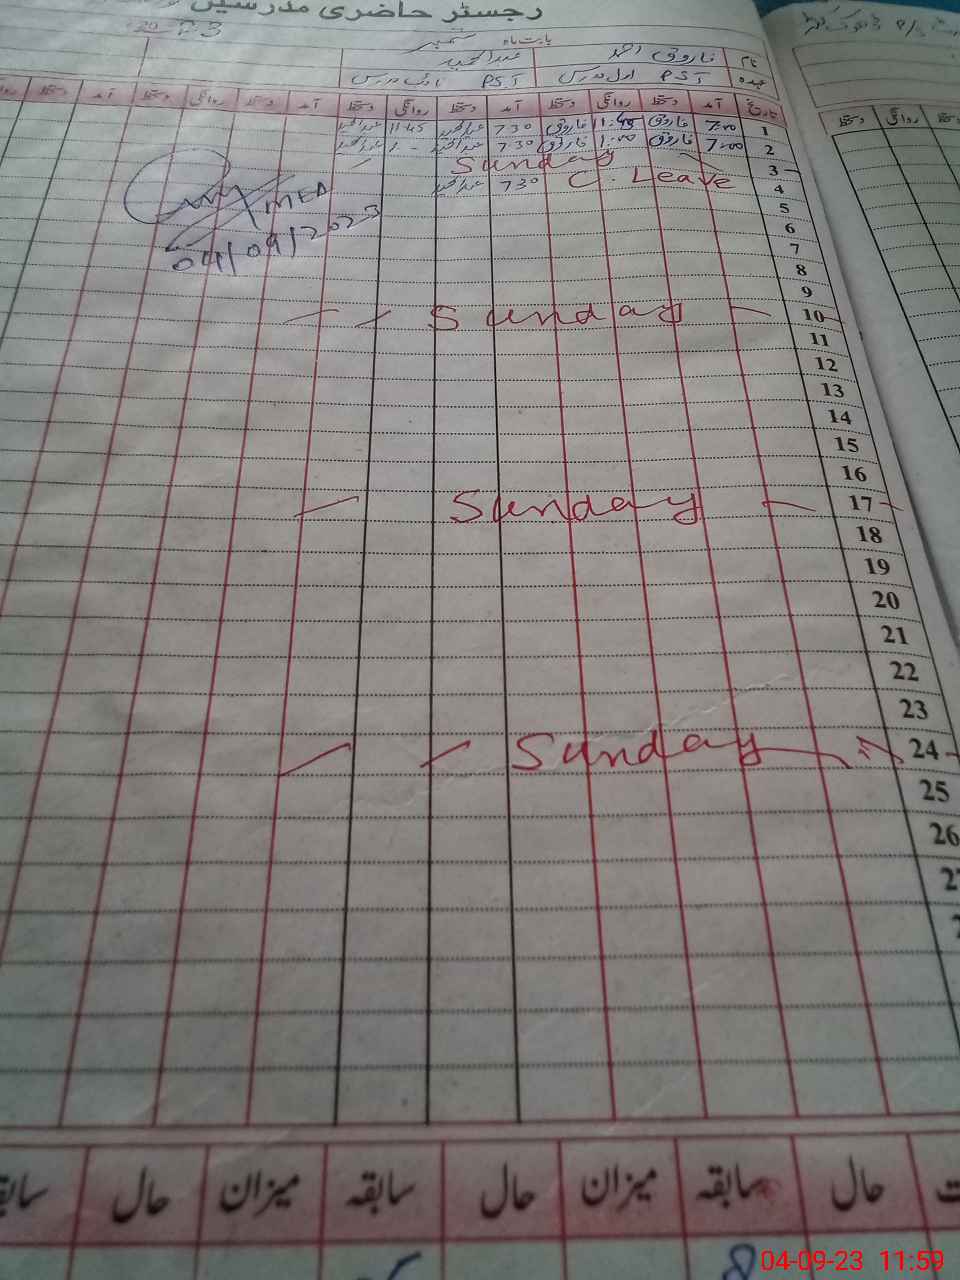 رجسٹر حاضری مدرسین
بابت ماہ ستمبر 2023
نام فاروق احمد عبدالحمید
عہدہ PST اول مدرس PST نائب مدرس
تاریخ آمد دستخط روانگی دستخط آمد دستخط روانگی دستخط آمد دستخط روانگی دستخط آمد دستخط روانگی دستخط
1 7:00 فاروق 11:45 فاروق 7 30 عبدالحمید 11 45 عبدالحمید
2 7:00 فاروق 1:00 فاروق 7 30 عبدالحمید 1 - عبدالحمید
3 Sunday
4 C. Leave 7 30 عبدالحمید
MEA
04/09/2023
5
6
7
8
9
10 Sunday
11
12
13
14
15
16
17 Sunday
18
19
20
21
22
23
24 Sunday
25
26
حال سابقہ میزان حال سابقہ میزان حال
8
04-09-23 11:59